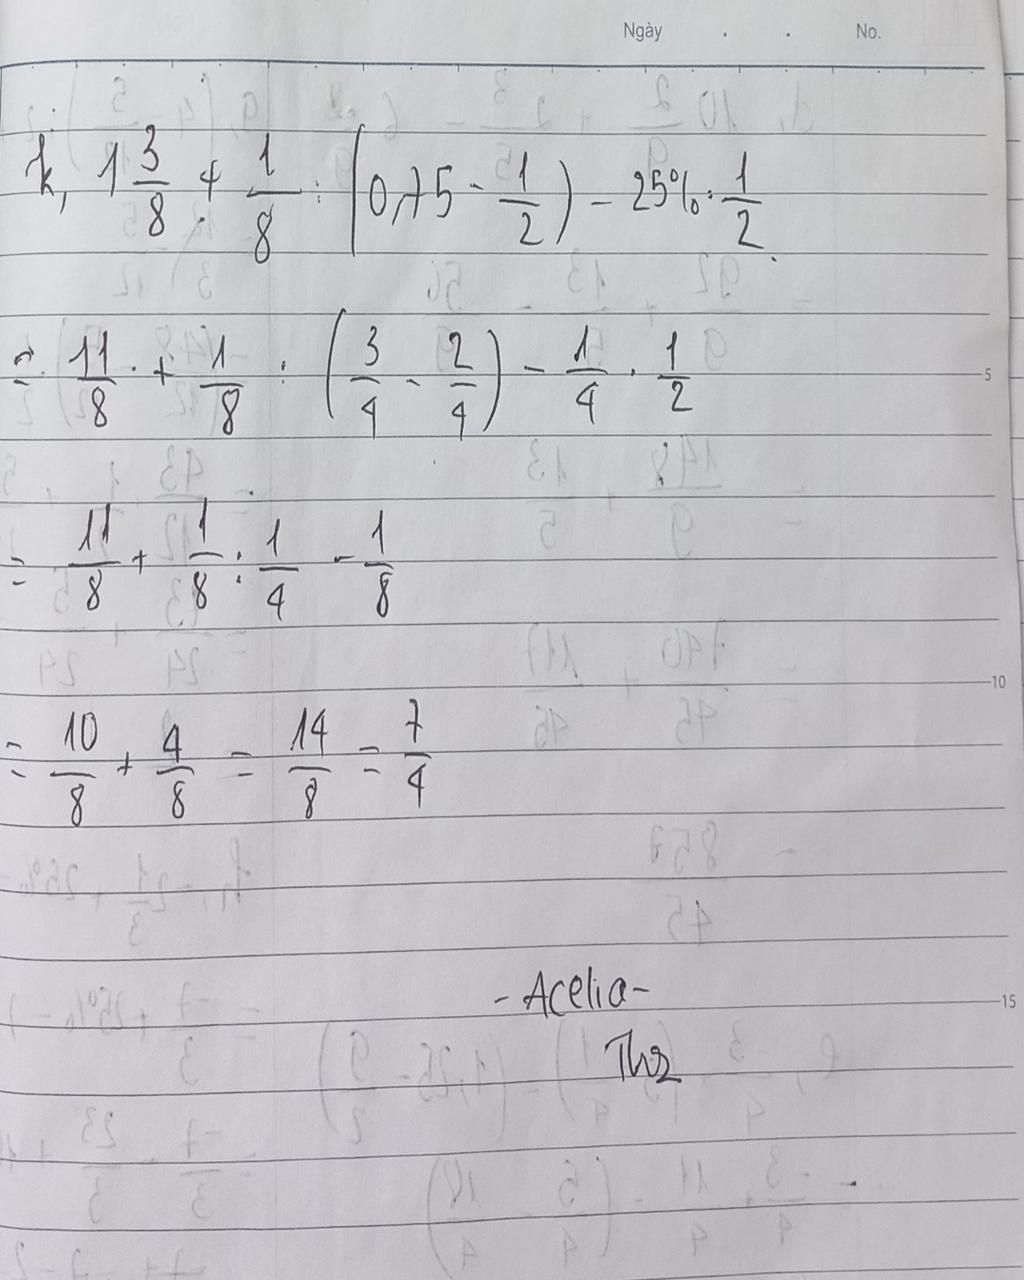 Ngày . . No.
k, 1 3/8 + 1/8 : (0,75 - 1/2) - 25% . 1/2
= 11/8 + 1/8 : (3/4 - 2/4) - 1/4 . 1/2
5
= 11/8 + 1/8 : 1/4 - 1/8
10
= 10/8 + 4/8 = 14/8 = 7/4
- Acelia -
15